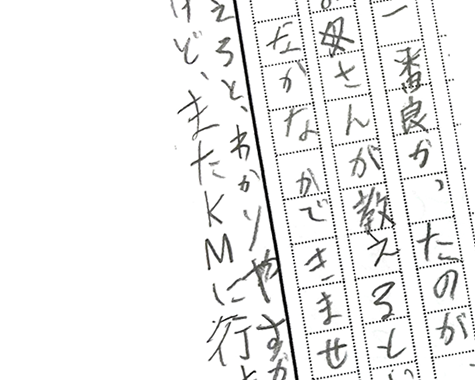 一番良かったのが
母さんが教えると
なかなかできませ
えると、わかりやすか
けど、またKMに行